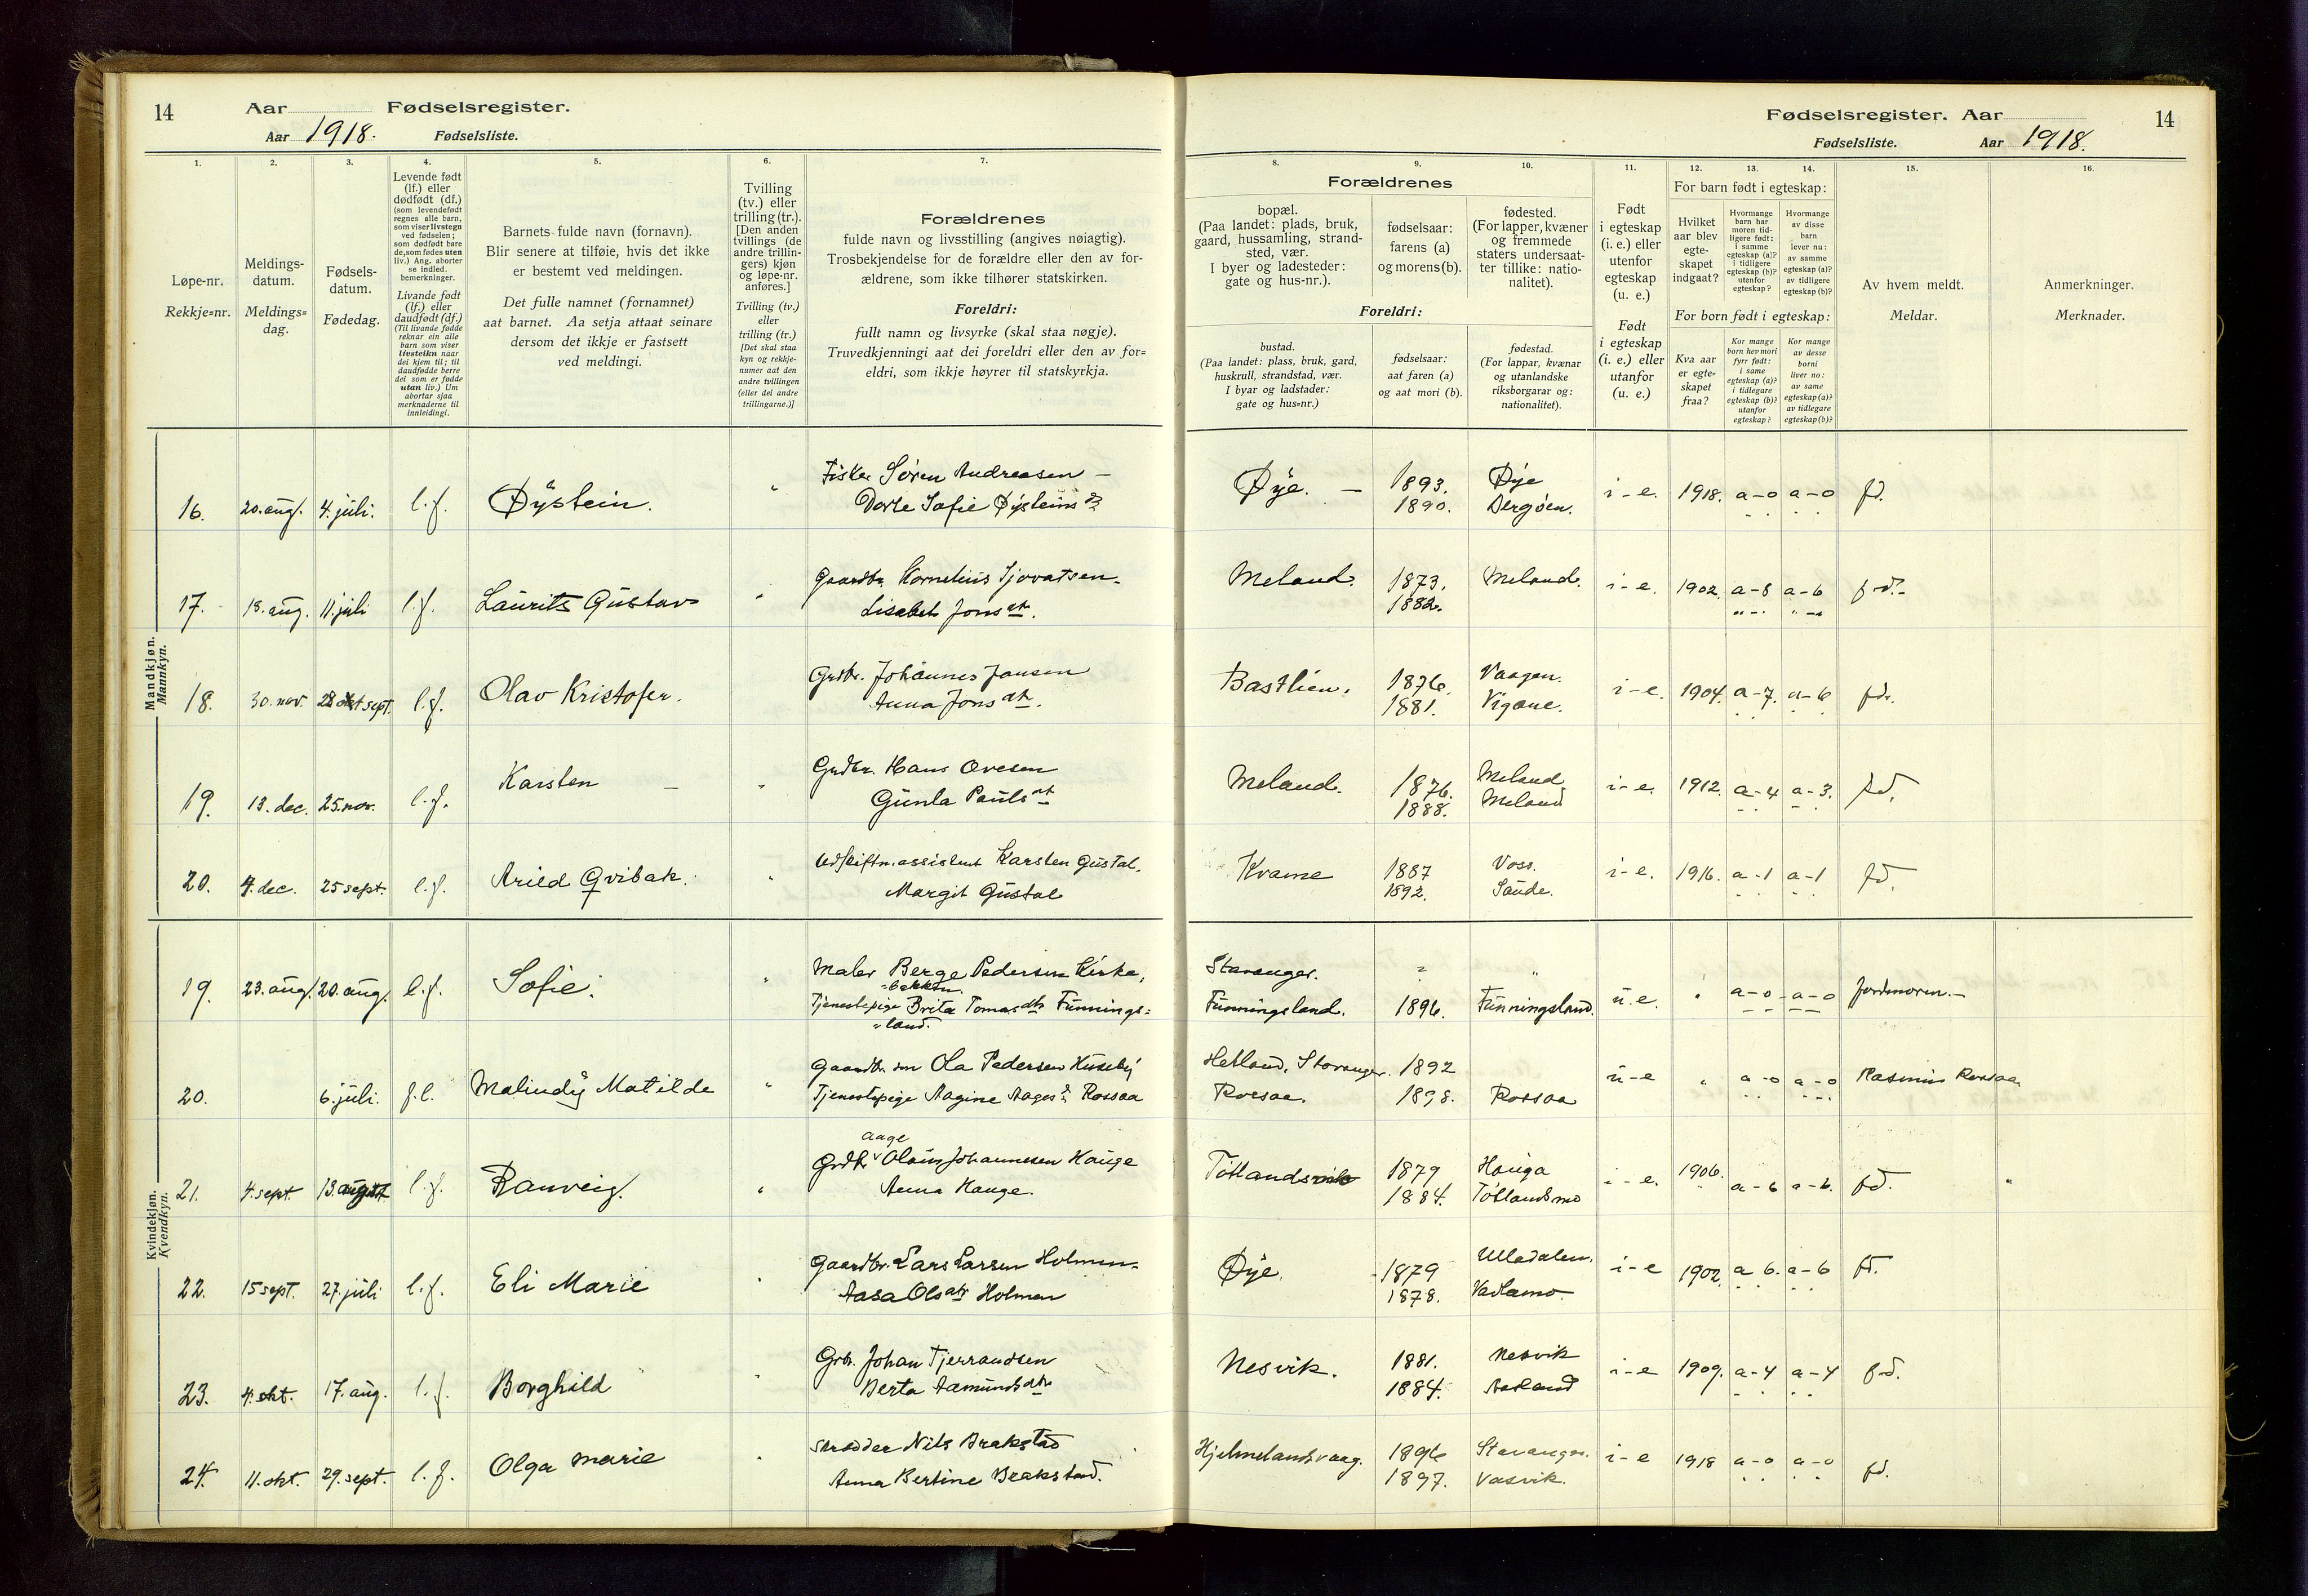 14 Aar Fødselsregister.
Aar 1918. Fødselsliste.
1. 2. 3. 4. 5. 6. 7.
Løpe-nr.
Rekkje=nr.
Meldings-
datum.
Meldings=
dag.
Fødsels-
datum.
Fødedag.
Levende født
(lf.) eller
dødfødt (df.)
(som levendefødt
regnes alle barn,
som viser livstegn
ved fødselen;
som dødfødt bare
de, som fødes uten
liv.) Ang. aborter
se indled.
bemerkninger.
Livande født
(lf.) eller
daudfødt (df.)
(Til livande fødde
reknar ein alle
barn som viser
livsteikn naar
dei kjem til; til
daudfødde berre
dei som er fødde
utan liv.) Um
abortar sjaa
merknaderne til
innleidingi.
Barnets fulde navn (fornavn).
Blir senere at tilføie, hvis det ikke
er bestemt ved meldingen.
Det fulle namnet (fornamnet)
aat barnet. Aa setja attaat seinare
dersom det ikkje er fastsett
ved meldingi.
Tvilling
(tv.) eller
trilling (tr.).
[Den anden
tvillings (de
andre trillin-
gers) kjøn
og løpe-nr.
anføres.]
Tvilling (tv.)
eller
trilling (tr.)
[Det skal staa
kyn og rekkje-
numer aat den
andre tvillingen
(eller dei andre
trillingarne.)]
Forældrenes
fulde navn og livsstilling (angives nøiagtig).
Trosbekjendelse for de forældre eller den av for-
ældrene, som ikke tilhører statskirken.
Foreldri:
fullt namn og livsyrke (skal staa nøgje).
Truvedkjenningi aat dei foreldri eller den av for=
eldri, som ikkje høyrer til statskyrkja.
Mandkjøn.
Mannkyn.
16. 20. aug. 4. juli. l.f. Øystein. " Fisker Sören Andreasen –
Dorte Sofie Øysteins dt
17. 18. aug. 11. juli l.f. Laurits Gustav " Gaardbr. Kornelius Sjovatsen.
Lisabet Jons dt.
18. 30. nov. 28 sept. l.f. Olav Kristofer. Grdbr. Johannes Jansen
Anna Jons dt.
19. 13. dec. 25. nov. l.f. Karsten – " Grdbr. Hans Ovesen
Gunla Pauls dt
20. 4. dec. 25 sept. l.f. Arild Qvibak. " Udskiftn. assistent Karsten Gustal.
Margit Gustal
Kvindekjøn.
Kvendkyn.
19. 23. aug. 20. aug. l.f. Sofie. " Maler Berge Pedersen Kirke,
=bakken.
Tjenestepige Brita Tomas dtr Funnings=
=land.
20. 6. juli. f.l. Malindy Matilde " Gaardbr. søn Ola Pedersen Huseby
Tjenestepige Aagine Aages dt. Rossaa
21. 4. sept. 13. august l.f. Ranveig. " aage
Grdbr Olaus Johannesen Hauge
Anna Hauge.
22. 15 sept. 27. juli l.f. Eli Marie " Gaardbr. Lars Larsen Holmen.
Aasa Ols dtr Holmen
23. 4. okt. 17. aug. l.f. Borghild " Grbr. Johan Tjerrandsen
Berta Aamunds dtr
24. 11. okt. 29. sept. l.f. Olga Marie " Skrædder Nils Brakstad
Anna Bertine Brakstad.
Fødselsregister. Aar 14
Fødselsliste. Aar 1918.
8. 9. 10. 11. 12. 13. 14. 15. 16.
Forældrenes
bopæl.
(Paa landet: plads, bruk,
gaard, hussamling, strand-
sted, vær.
I byer og ladesteder:
gate og hus-nr.).
fødselsaar:
farens (a)
og morens (b).
fødested.
(For lapper, kvæner
og fremmede
staters undersaat-
ter tillike: natio-
nalitet).
Foreldri:
bustad.
(Paa landet: plass, bruk, gard,
huskrull, strandstad, vær.
I byar og ladstader:
gate og hus=nr.)
fødselsaar:
aat faren (a)
og aat mori (b).
fødestad.
(For lappar, kvænar
og utanlandske
riksborgarar og:
nationalitet).
Født
i egteskap
(i. e.) eller
utenfor
egteskap
(u. e.)
Født
i egteskap
(i. e.) eller
utanfor
(u. e.)
For barn født i egteskap:
Hvilket
aar blev
egte-
skapet
indgaat?
Hvormange
barn har
moren tid-
ligere født:
i samme
egteskap (a)?
i tidligere
egteskap (b)?
utenfor
egteskap?
Hvormange
av disse
barn
lever nu:
av samme
egteskap (a)?
av tidligere
egteskap (b)?
For born født i egteskap:
Kva aar
er egte=
skapet
fraa?
Kor mange
born hev mori
fyrr født:
i same
egteskap (a)?
i tidlegare
egteskap (b)?
utanfor
egteskap?
Kor mange
av desse
borni
liver no:
av same
egteskap (a)?
av tidlegare
egteskap (b)?
Av hvem meldt.
Meldar.
Anmerkninger.
Merknader.
Øye. – 1893. Øye i-e. 1918. a-o a-o fd.
1890. Bergöen.
Meland. 1873. Meland. i-e. 1902. a-8 a-6 fd.
1882.
Bastlien. 1876. Vaagen. i-e. 1904. a-7. a-6 fdr.
1881. Vigane.
Meland. 1876. Meland i-e. 1912. a-4 a-3. fd.
1888. Meland
Kvame 1887 Voss. i-e. 1916. a-1 a-1 fd.
1892. Saude.
Stavanger. " "
Funningsland. 1896. Funningsland. u.e. " a-o a-o Jordmoren.–
Hetland, Stavanger. 1892 u-e " a-o a-o Rasmus Rossaa
Rossaa. 1898. Rossaa
Töttandsvik 1879 Hauga i-e. 1906. a-6 a-6. fd. "
1884. Töttandsmo
Øye. 1879 Ulladalen. i-e 1902. a 6. a-6 fd.
1878. Vadlamo.
Nesvik. 1881. Nesvik i-e 1909. a-4 a-4 fd.
1884.
Hjelmelandsvaag. 1896 Stavanger. i-e 1918 a-o a-o fd.
1897. Vasvik.